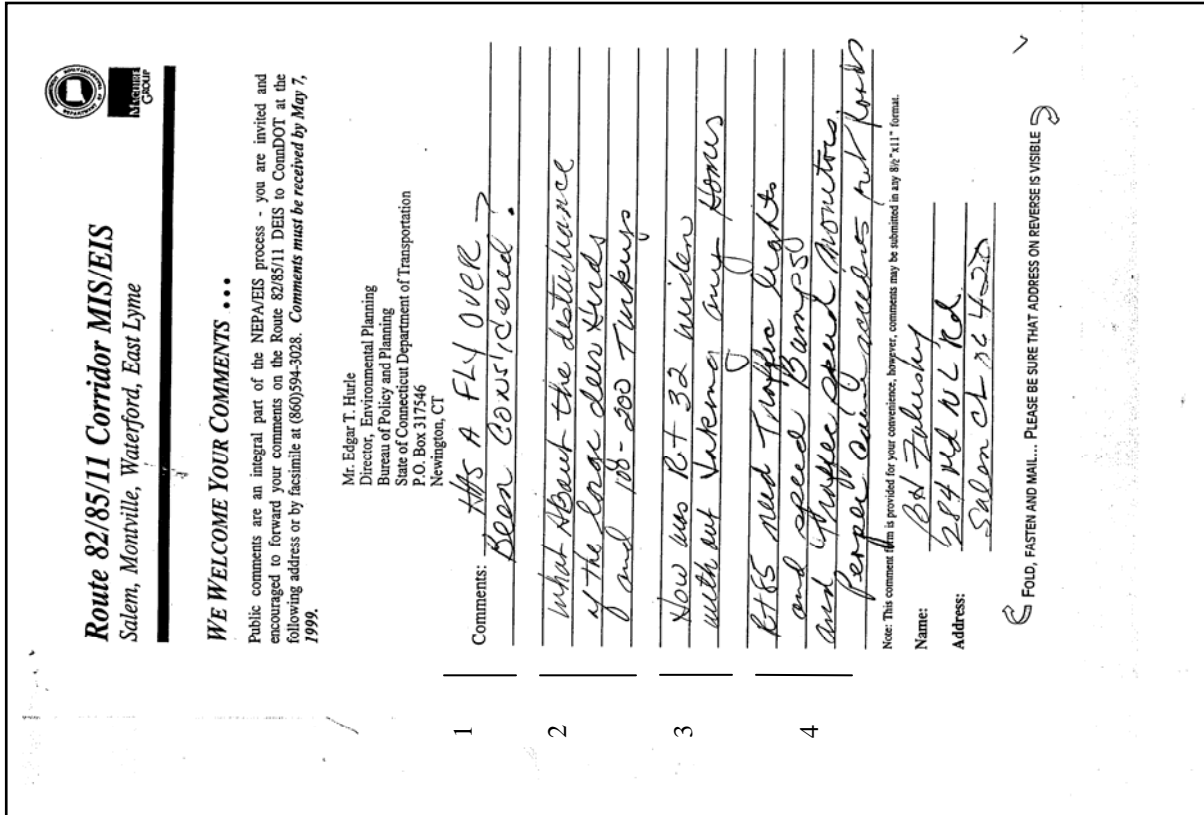 Route 82/85/11 Corridor MIS/EIS
Salem, Montville, Waterford, East Lyme
MAGUIRE
GROUP
WE WELCOME YOUR COMMENTS ...
Public comments are an integral part of the NEPA/EIS process - you are invited and
encouraged to forward your comments on the Route 82/85/11 DEIS to ConnDOT at the
following address or by facsimile at (860)594-3028. Comments must be received by May 7,
1999.
Mr. Edgar T. Hurle
Director, Environmental Planning
Bureau of Policy and Planning
State of Connecticut Department of Transportation
P.O. Box 317546
Newington, CT
1
Comments: HAS A FLY OVER
Been Considered ?
2
What About the desturbance
of the large deer Herds
and 100-200 Turkeys
3
How was Rt 32 widen
with out taking any Homes
4
Rt 85 need Traffic lights
and speed Bumps
and traffic speed monitors
People cause accidents not roads
Note: This comment form is provided for your convenience, however, comments may be submitted in any 8½"x11" format.
Name: BH
Address: Old NL Rd
Salem Ct 06420
FOLD, FASTEN AND MAIL... PLEASE BE SURE THAT ADDRESS ON REVERSE IS VISIBLE